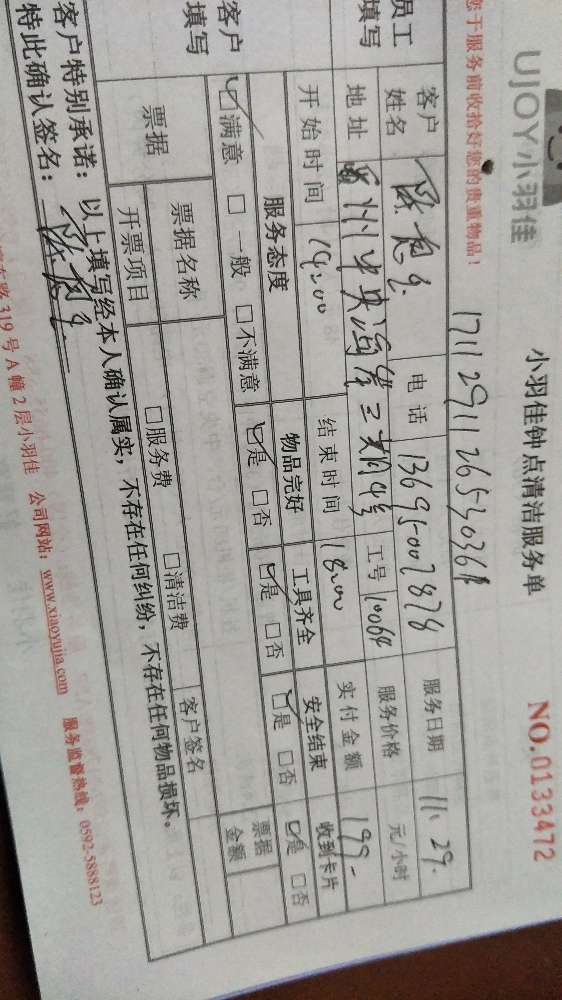 UJOY小羽佳
小羽佳钟点清洁服务单
NO.0133472
于服务前收拾好您的贵重物品！
员工填写
客户姓名
电话 13695007878
服务日期 11.29.
地址
工号
服务价格 元/小时
开始时间 14:00
结束时间 18:00
实付金额 199-
客户填写
服务态度 物品完好 工具齐全 安全结束 收到卡片
☑满意 □一般 □不满意 ☑是 □否 ☑是 □否 ☑是 □否 ☑是 □否
票据
票据名称
票据金额
开票项目 □服务费 □清洁费 客户签名
客户特别承诺：以上填写经本人确认属实，不存在任何纠纷，不存在任何物品损坏。
特此确认签名：
路319号A幢2层小羽佳 公司网站：www.xiaoyujia.com 服务监督热线：0592-5888123